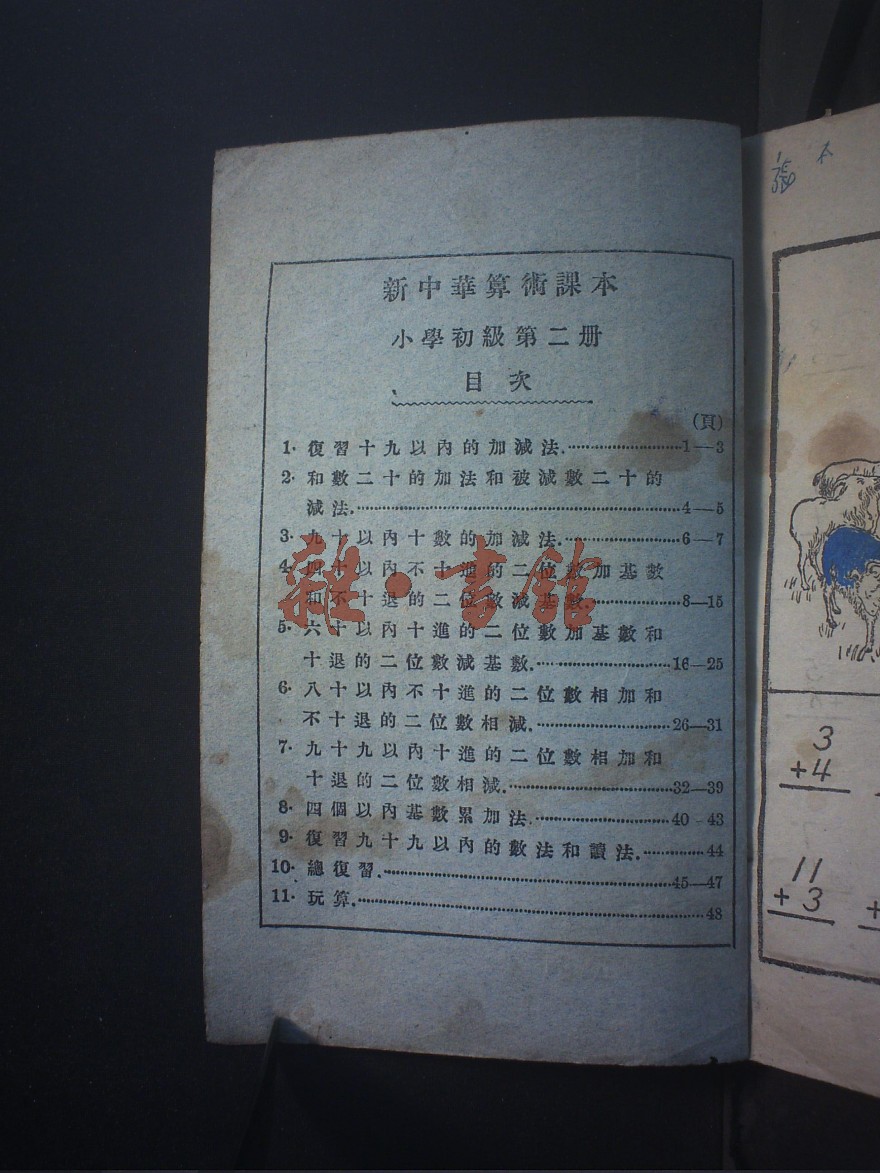 新中華算術課本
小學初級第二册
目次
(頁)
1. 復習十九以內的加減法. 1—3
2. 和數二十的加法和被減數二十的
減法. 4—5
3. 九十以內十數的加減法. 6—7
4. 四十以內不十進的二位數加基數
和不十退的二位數減基數. 8—15
5. 六十以內十進的二位數加基數和
十退的二位數減基數. 16—25
6. 八十以內不十進的二位數相加和
不十退的二位數相減. 26—31
7. 九十九以內十進的二位數相加和
十退的二位數相減. 32—39
8. 四個以內基數累加法. 40-43
9. 復習九十九以內的數法和讀法. 44
10. 總復習. 45—47
11. 玩算. 48
雜·書館
3
+4
11
+3
+